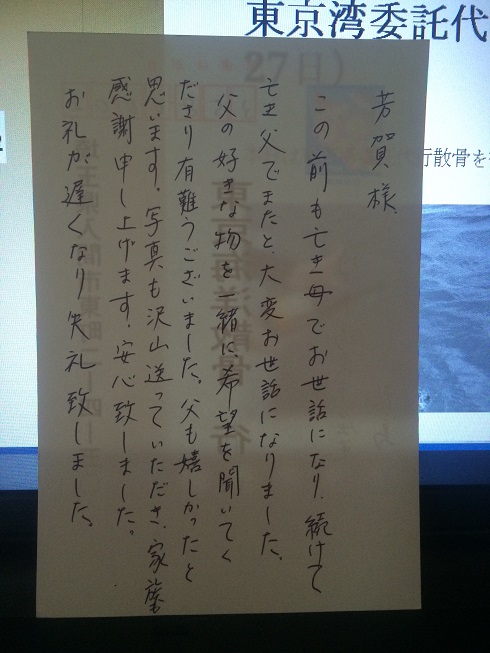 東京湾委託代
27日)
行散骨を
芳賀様
この前も亡き母でお世話になり、続けて
亡き父でまたと、大変お世話になりました。
父の好きな物を一緒に、希望を聞いてく
ださり有難うございました。父も嬉しかったと
思います。写真も沢山送っていただき、家族も
感謝申し上げます。安心致しました。
お礼が遅くなり失礼致しました。